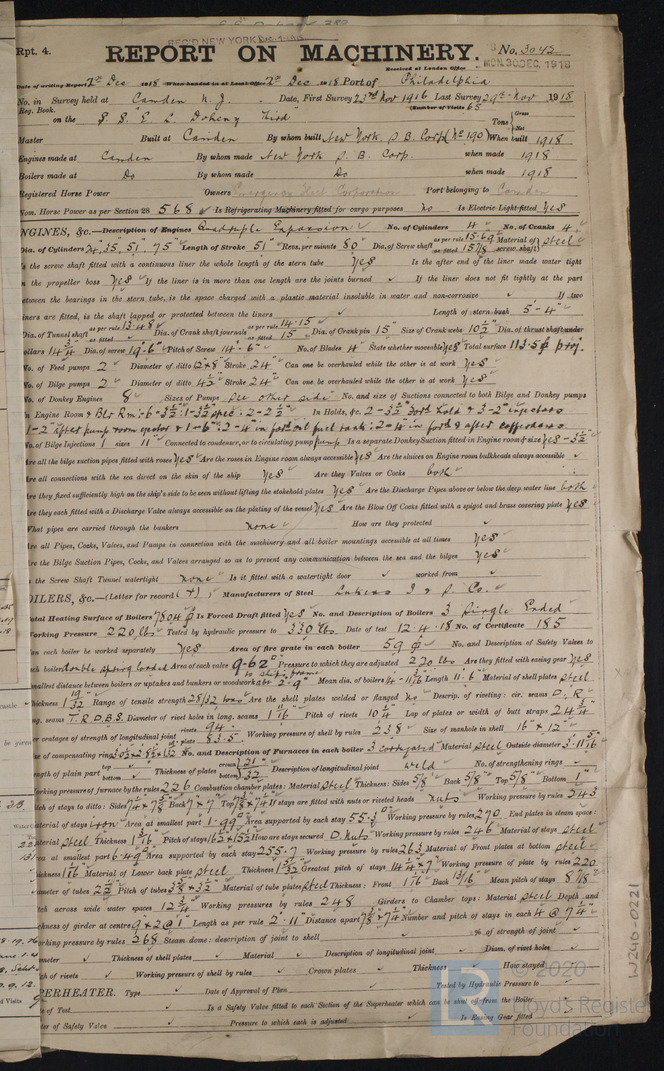 Rpt. 4.
REC'D NEW YORK
REPORT ON MACHINERY.
No. 3042
MON. 30 DEC. 1918
Received at London Office
Date of writing Report 2nd Dec 1918 When handed in at Local Office 2nd Dec 1918 Port of Philadelphia
No. in Survey held at Camden N.J. Date, First Survey 23rd Nov 1916 Last Survey 29th Nov 1918
Reg. Book. (Number of Visits 65
on the S.S. E L Doheny Third Tons Gross Net
Master Built at Camden By whom built New York S.B. Corp (No 190) When built 1918
Engines made at Camden By whom made New York S.B. Corp. when made 1918
Boilers made at Do By whom made Do when made 1918
Registered Horse Power Owners Emergency Fleet Corporation Port belonging to Camden
Nom. Horse Power as per Section 28 568 Is Refrigerating Machinery fitted for cargo purposes no Is Electric Light fitted Yes
NGINES, &c.—Description of Engines Quadruple Expansion No. of Cylinders 4 No. of Cranks 4
Dia. of Cylinders 24, 35, 51, 75" Length of Stroke 51" Revs. per minute 80 Dia. of Screw shaft as per rule 15.69 as fitted 15 7/8 Material of screw shaft Steel
Is the screw shaft fitted with a continuous liner the whole length of the stern tube Yes Is the after end of the liner made water tight
in the propeller boss Yes If the liner is in more than one length are the joints burned If the liner does not fit tightly at the part
between the bearings in the stern tube, is the space charged with a plastic material insoluble in water and non-corrosive If two
liners are fitted, is the shaft lapped or protected between the liners Length of stern bush 5'-4"
Dia. of Tunnel shaft as per rule 13.48 as fitted Dia. of Crank shaft journals as per rule 14.15 as fitted 15 Dia. of Crank pin 15" Size of Crank webs 10 1/2 Dia. of thrust shaft under
ollars 14 3/4 Dia. of screw 19'-6" Pitch of Screw 14'-6" No. of Blades 4 State whether moveable Yes Total surface 113.5 proj.
No. of Feed pumps 2 Diameter of ditto 12x8 Stroke 24" Can one be overhauled while the other is at work Yes
No. of Bilge pumps 2 Diameter of ditto 4 1/2 Stroke 24" Can one be overhauled while the other is at work Yes
No. of Donkey Engines 8 Sizes of Pumps See other side No. and size of Suctions connected to both Bilge and Donkey pumps
In Engine Room & Blr Rm: 6-3 1/2: 1-3 1/2 spec: 2-2 1/2 In Holds, &c. 2-3 1/2 for'd hold & 3-2" injectors
No. of Bilge Injections 1 sizes 11" Connected to condenser, or to circulating pump pump Is a separate Donkey Suction fitted in Engine room & size Yes-3 1/2
Are all the bilge suction pipes fitted with roses Yes Are the roses in Engine room always accessible Yes Are the sluices on Engine room bulkheads always accessible
Are all connections with the sea direct on the skin of the ship Yes Are they Valves or Cocks both
Are they fixed sufficiently high on the ship's side to be seen without lifting the stokehold plates Yes Are the Discharge Pipes above or below the deep water line both
Are they each fitted with a Discharge Valve always accessible on the plating of the vessel Yes Are the Blow Off Cocks fitted with a spigot and brass covering plate Yes
What pipes are carried through the bunkers none How are they protected
Are all Pipes, Cocks, Valves, and Pumps in connection with the machinery and all boiler mountings accessible at all times Yes
Are the Bilge Suction Pipes, Cocks, and Valves arranged so as to prevent any communication between the sea and the bilges Yes
the Screw Shaft Tunnel watertight none Is it fitted with a watertight door worked from
OILERS, &c.—(Letter for record (+) Manufacturers of Steel Lukens I & S Co.
otal Heating Surface of Boilers 7804 Is Forced Draft fitted Yes No. and Description of Boilers 3 Single Ended
Working Pressure 220 lbs Tested by hydraulic pressure to 330 lbs Date of test 12.4.18 No. of Certificate 185
an each boiler be worked separately Yes Area of fire grate in each boiler 59 No. and Description of Safety Valves to
ch boiler double spring loaded Area of each valve 9.62" Pressure to which they are adjusted 220 lbs Are they fitted with easing gear Yes
mallest distance between boilers or uptakes and bunkers or woodwork abt 2'-9" to ship frame Mean dia. of boilers 14'-11 7/16 Length 11'-6 Material of shell plates Steel
hickness 1 19/32 Range of tensile strength 28/32 tons Are the shell plates welded or flanged No Descrip. of riveting: cir. seams D.R.
ng. seams T.R.D.B.S. Diameter of rivet holes in long. seams 1 9/16 Pitch of rivets 10 1/4 Lap of plates or width of butt straps 24 3/4
er centages of strength of longitudinal joint rivets 94 plate 83.5 Working pressure of shell by rules 238 Size of manhole in shell 16" x 12"
ze of compensating ring No. and Description of Furnaces in each boiler 3 corrugated Material Steel Outside diameter
ngth of plain part top bottom Thickness of plates crown bottom 21/32 Description of longitudinal joint weld No. of strengthening rings
orking pressure of furnace by the rules 226 Combustion chamber plates: Material Steel Thickness: Sides 5/8 Back 5/8 Top 5/8 Bottom 1"
tch of stays to ditto: Sides 7 1/4 x 7 7/8 Back 7 x 7 Top 7 7/8 x 7 1/4 If stays are fitted with nuts or riveted heads nuts Working pressure by rules 243
aterial of stays iron Area at smallest part 1.99 Area supported by each stay 55.3 Working pressure by rules 270 End plates in steam space:
aterial steel Thickness 1 3/16 Pitch of stays 16 1/2 x 15 1/2 How are stays secured D. Nuts Working pressure by rules 246 Material of stays Steel
ea at smallest part 6.49 Area supported by each stay 255.7 Working pressure by rules 263 Material of Front plates at bottom steel
ickness Material of Lower back plate Steel Thickness Greatest pitch of stays 14 1/4 x 7 Working pressure of plate by rules 220
ameter of tubes 2 1/2 Pitch of tubes Material of tube plates Steel Thickness: Front Back 13/16 Mean pitch of stays 8 7/8
tch across wide water spaces 12 3/4 Working pressures by rules 248 Girders to Chamber tops: Material Steel Depth and
ickness of girder at centre 9 x 2 @ 1" Length as per rule 2'-11" Distance apart 7 7/8 x 7 1/4 Number and pitch of stays in each 4 @ 7 1/4
orking pressure by rules 268 Steam dome: description of joint to shell % of strength of joint
ameter Thickness of shell plates Material Description of longitudinal joint Diam. of rivet holes
tch of rivets Working pressure of shell by rules Crown plates Thickness How stayed
PERHEATER. Type Date of Approval of Plan Tested by Hydraulic Pressure to
of Test Is it Safety Valve fitted to each Section of the Superheater which can be shut off from the Boiler
ter of Safety Valve Pressure to which each is adjusted Is Easing Gear fitted
© 2020
Lloyd's Register
Foundation
W240-0221